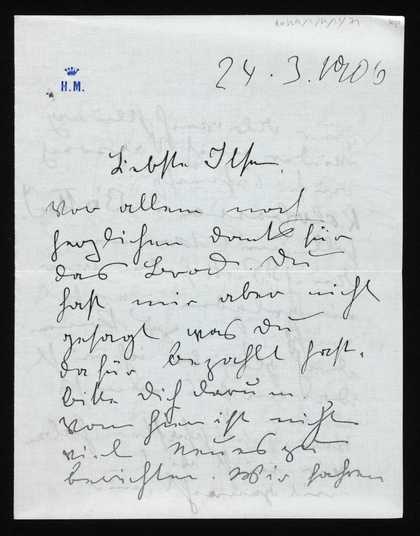 H.M.
24.3.1906
Liebste Ilse,
vor allem noch
herzlichen Dank für
das Brod. Du
hast mir aber nicht
gesagt was du
dafür bezahlt hast.
bitte dich darum.
Von hier ist nicht
viel Neues zu
berichten. Wir fahren